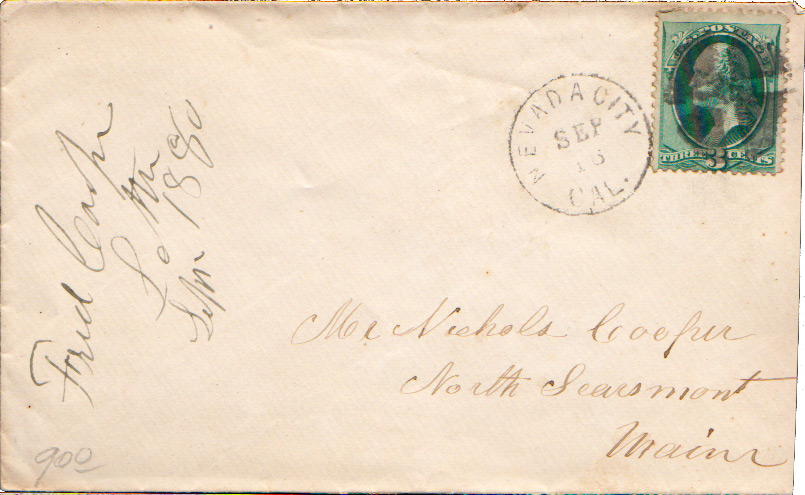 U.S. POSTAGE
THREE 3 CENTS
NEVADA CITY
SEP
CAL.
Fred
Sepr 1880
Mr Nichols Cooper
North Searsmont
Maine
900